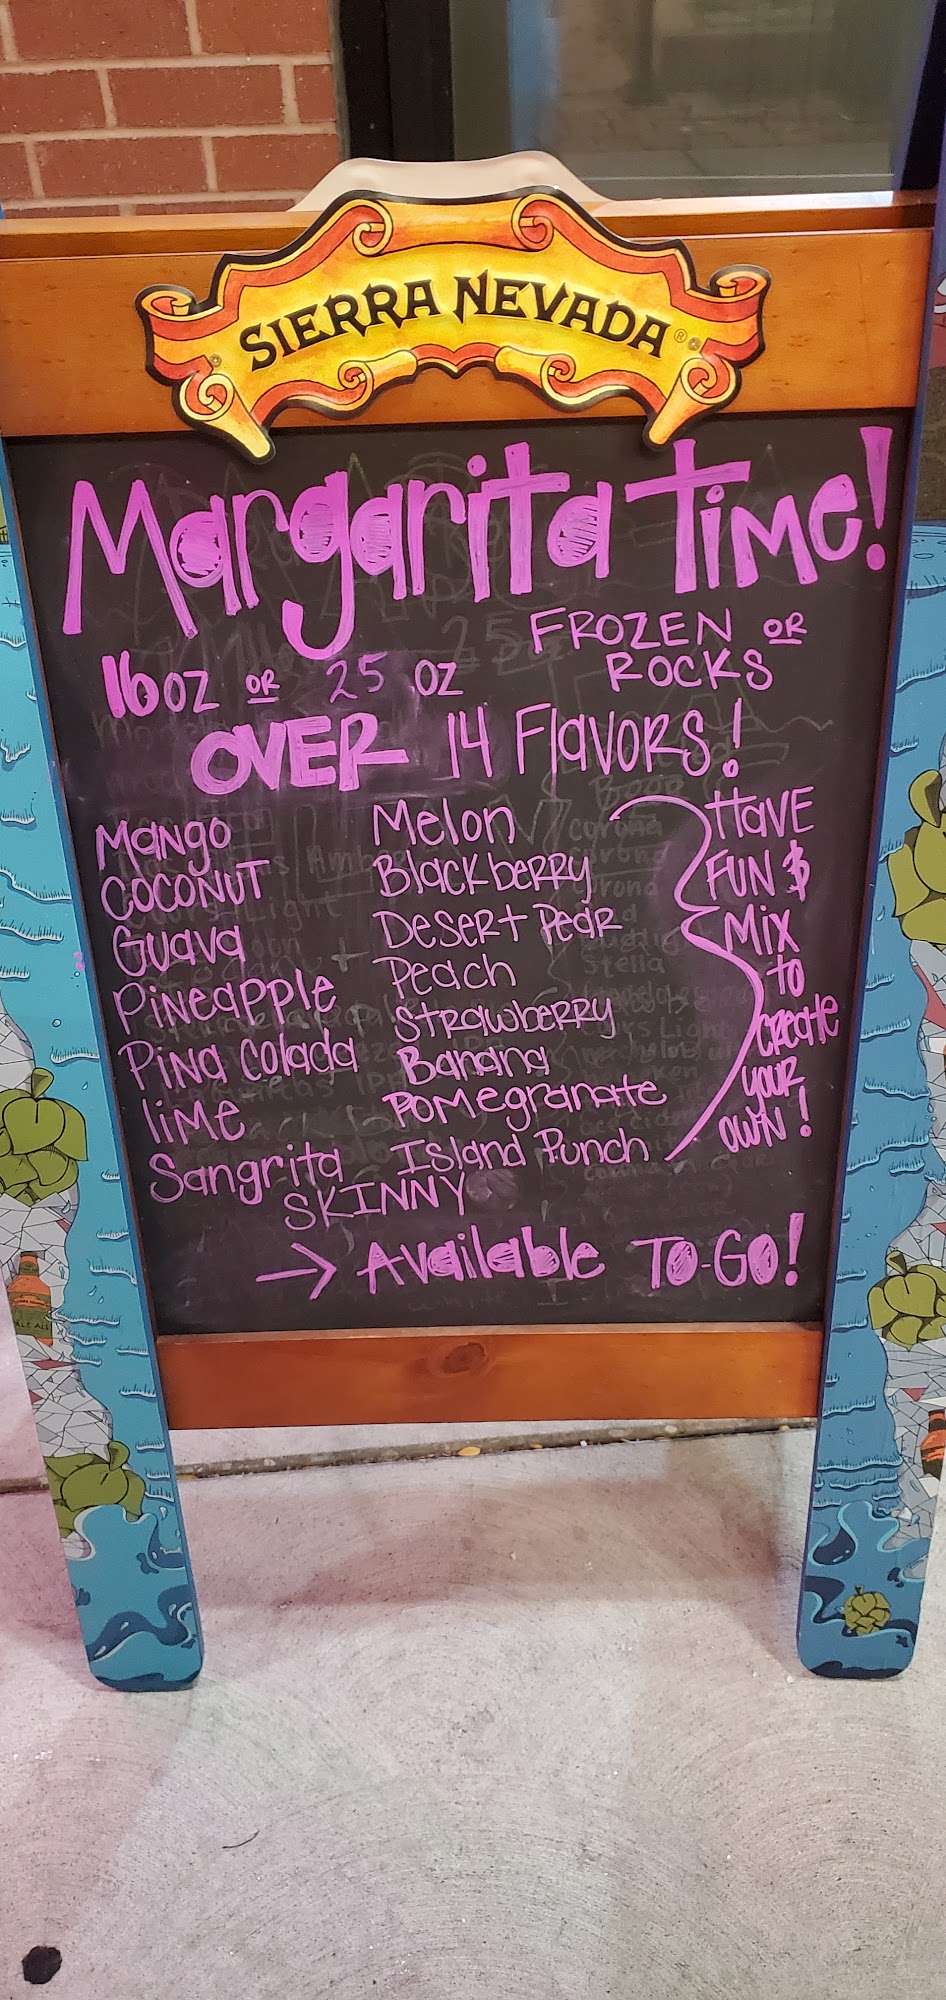 SIERRA NEVADA®
Margarita Time!
16oz or 25 oz
FROZEN or
ROCKS
OVER 14 Flavors!
Mango
COCONUT
Guava
Pineapple
Pina Colada
lime
Sangrita
SKINNY
Melon
Blackberry
Desert Pear
Peach
Strawberry
Banana
Pomegranate
Island Punch
Have
FUN $
Mix
to
create
your
own!
→ Available To-Go!